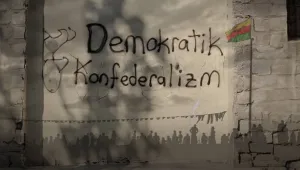 Demokratik
Konfederalizm